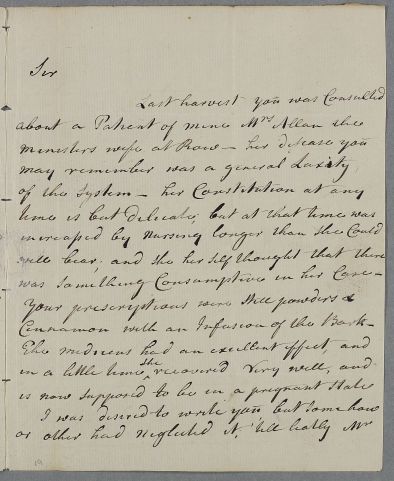 Sir
Last harvest you was Consulted
about a Patient of mine Mrs Allan the
ministers wife at Row – her disease you
may remember was a general Laxity
of the System – her Constitution at any
time is but delicate; but at that time was
increased by nursing longer than she Could
well bear; and she herself thought that there
was something Consumptive in her Case –
Your prescriptions were Steel powders &
Cinnamon with an Infusion of the Bark –
The medicens had an excellent effect, and
in a little time she recovered very well, and
is now supposed to be in a pregnant State
I was desired to write you, but some how
or other had neglected it, 'till lately Mr
19